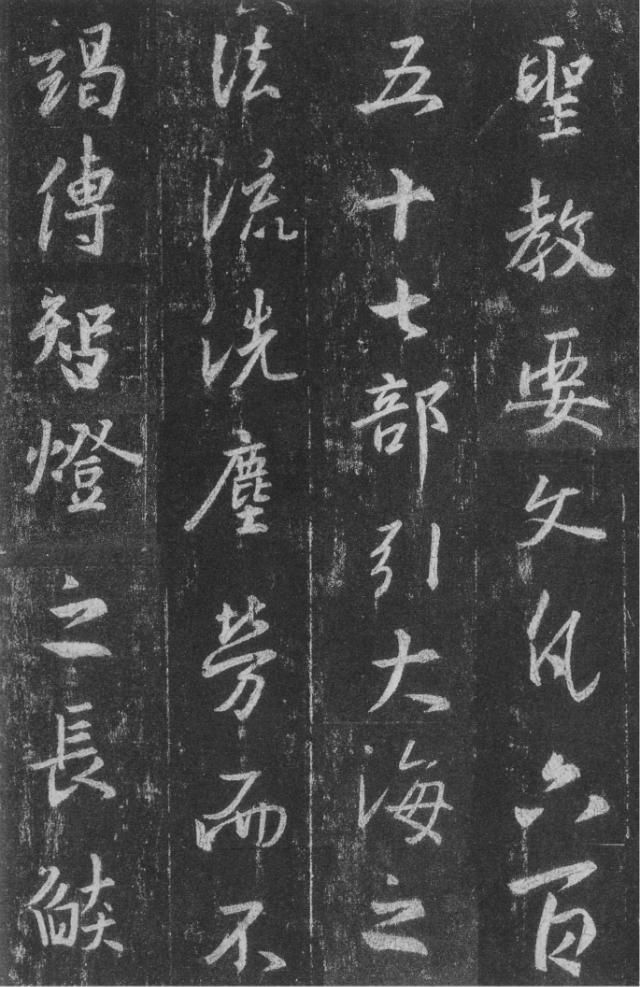 聖教要文凡六百
五十七部引大海之
法流洗塵勞而不
竭傳智燈之長燄